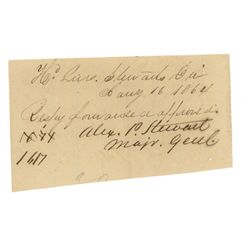 Hd. Qurs. Stewarts Div
Jany 16 1864
Resply forwarded approved
Alex. P. Stewart
Majr. Genl